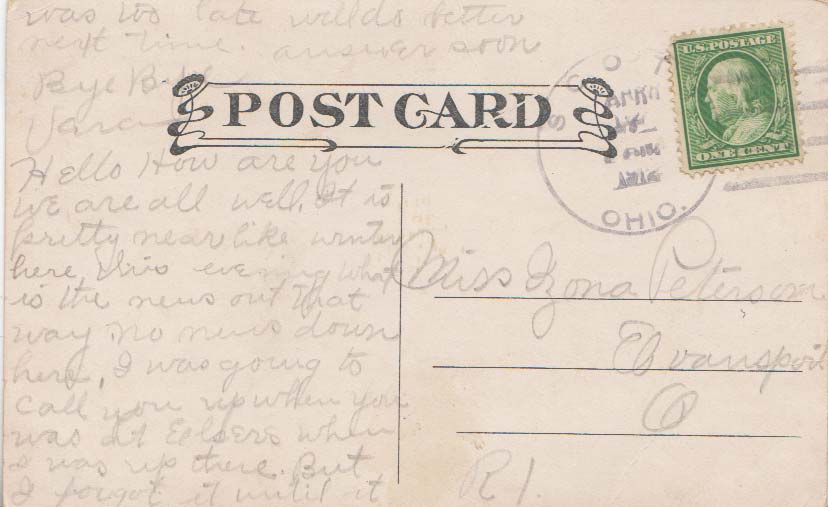 was too late will do better
next time. answer soon
Bye Bye
Vara
POST CARD
U.S. POSTAGE
ONE CENT
OHIO.
Hello How are you
we are all well. It is
pretty near like winter
here this evening what
is the news out that
way no news down
here, I was going to
call you up when you
was at when
I was up there. But
I forgot it until it
Miss Zona Peterson
Evansport
O
R 1.